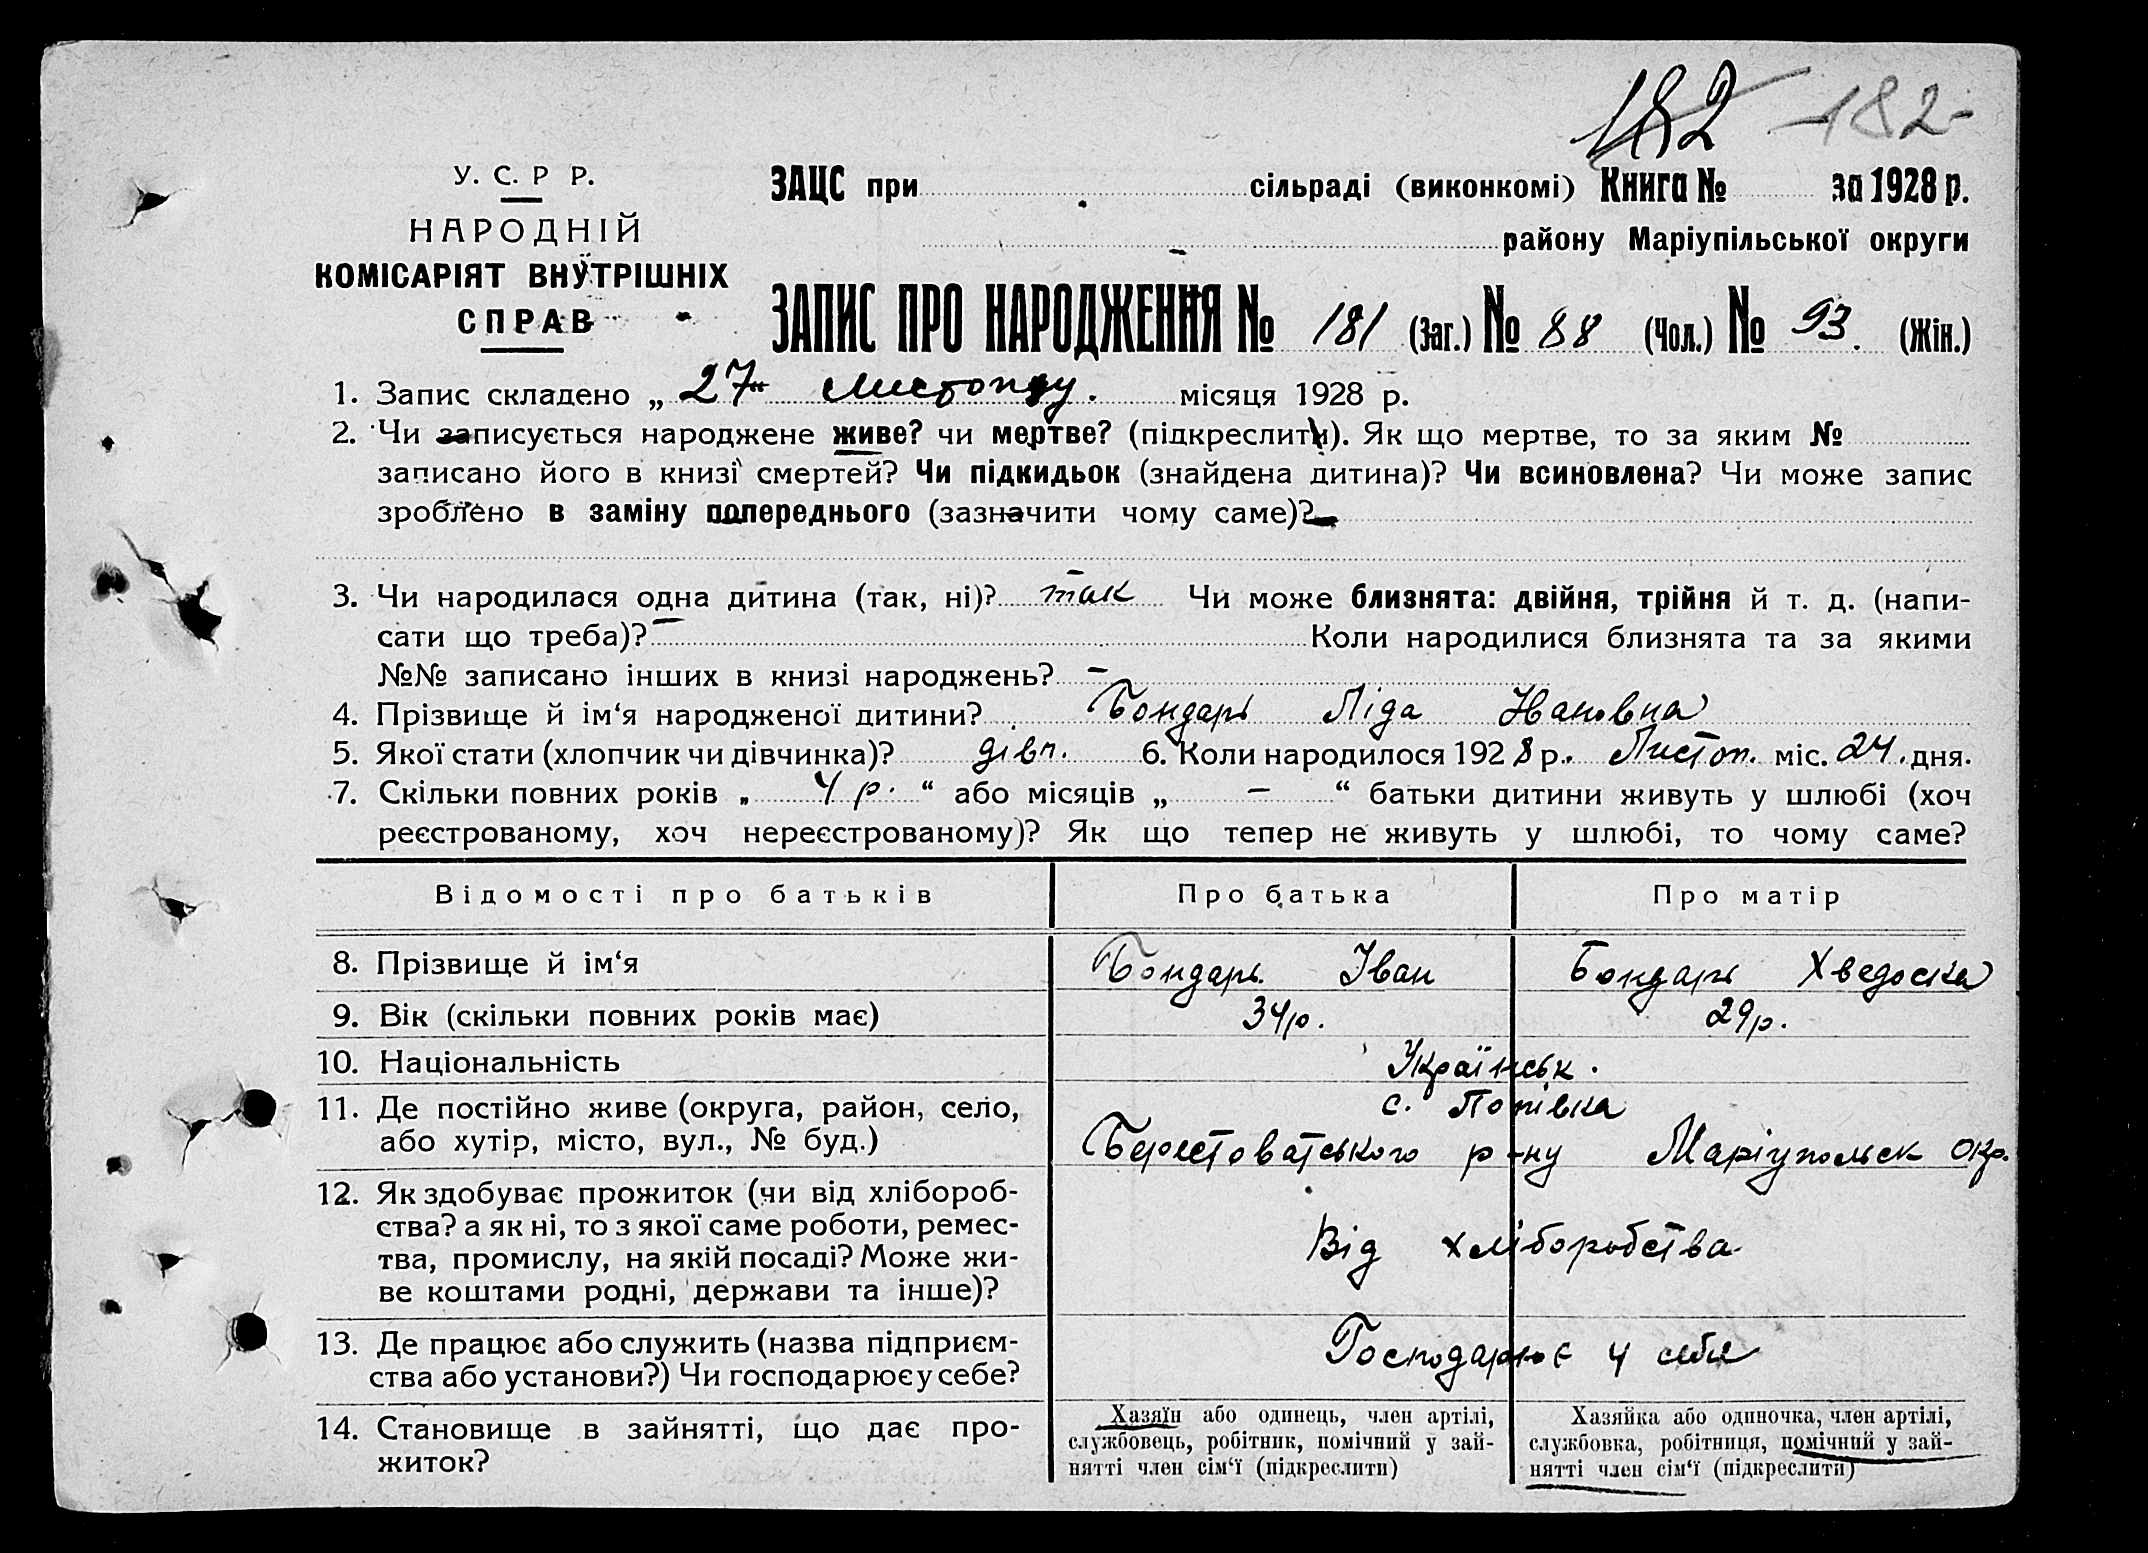 182 182
У. С. Р Р.
НАРОДНІЙ
КОМІСАРІЯТ ВНУТРІШНІХ
СПРАВ
ЗАЦС при сільраді (виконкомі) Книга № за 1928 р.
району Маріупільської округи
ЗАПИС ПРО НАРОДЖЕННЯ № 181 (Заг.) № 88 (Чол.) № 93. (Жін.)
1. Запис складено „ 27“ листопаду. місяця 1928 р.
2. Чи записується народжене живе? чи мертве? (підкреслити). Як що мертве, то за яким №
записано його в книзі смертей? Чи підкидьок (знайдена дитина)? Чи всиновлена? Чи може запис
зроблено в заміну попереднього (зазначити чому саме)? –
3. Чи народилася одна дитина (так, ні)? так Чи може близнята: двійня, трійня й т. д. (напи-
сати що треба)? – Коли народилися близнята та за якими
№№ записано інших в книзі народжень? –
4. Прізвище й ім‘я народженої дитини? Бондарь Ліда Ивановна
5. Якої стати (хлопчик чи дівчинка)? дівч. 6. Коли народилося 1928 р. Листоп. міс. 24. дня.
7. Скільки повних років „ 4 р. “ або місяців „ – “ батьки дитини живуть у шлюбі (хоч
реєстрованому, хоч нереєстрованому)? Як що тепер не живуть у шлюбі, то чому саме?
Відомості про батьків Про батька Про матір
8. Прізвище й ім‘я Бондарь Іван Бондарь Хведоска
9. Вік (скільки повних років має) 34 р. 29 р.
10. Національність Українськ.
11. Де постійно живе (округа, район, село, с. Попівка
або хутір, місто, вул., № буд.) Берестоватського р-ну Маріупольск окр.
12. Як здобуває прожиток (чи від хлібороб-
ства? а як ні, то з якої саме роботи, ремес-
тва, промислу, на якій посаді? Може жи-
ве коштами родні, держави та інше)? Від хліборобства
13. Де працює або служить (назва підприєм-
ства або установи?) Чи господарює у себе? Господарює у себя
14. Становище в зайнятті, що дає про-
житок?
Хазяїн або одинець, член артілі,
службовець, робітник, помічний у зай-
нятті член сім‘ї (підкреслити)
Хазяйка або одиночка, член артілі,
службовка, робітниця, помічний у зай-
нятті член сім‘ї (підкреслити)